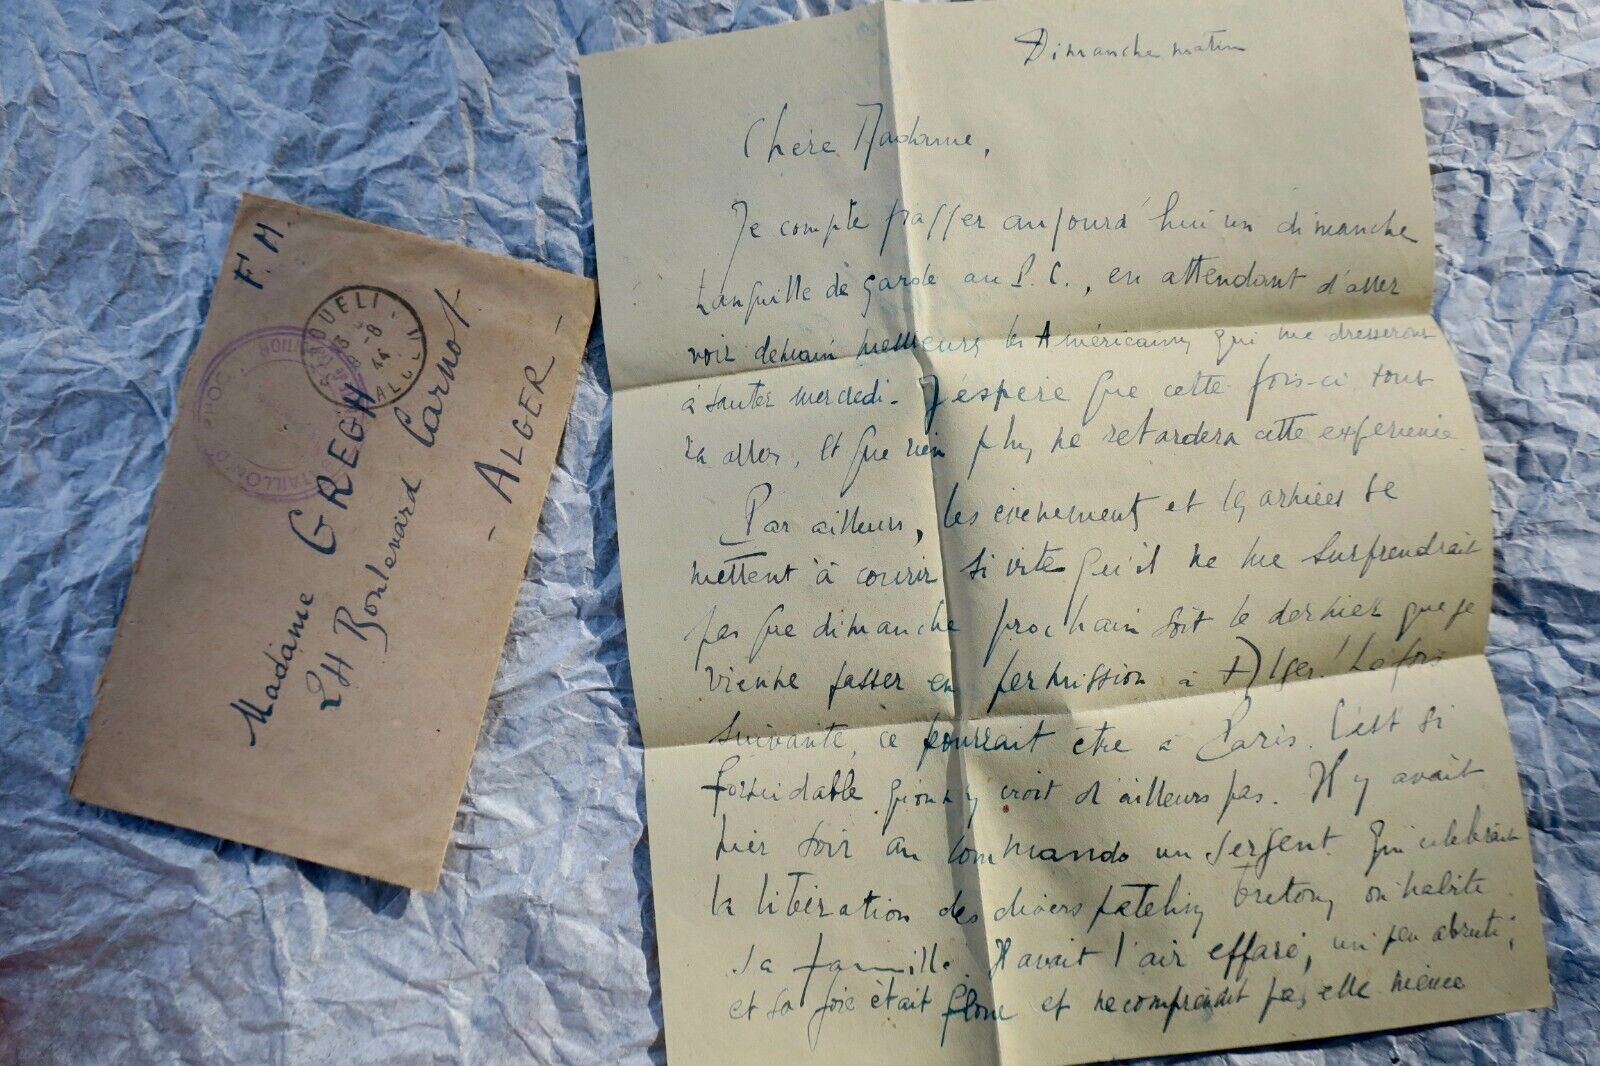 F.M.
OUELI
8
44
ALGER
BATAILLON
Madame GREGH
24 Boulevard Carnot
- ALGER -
Dimanche matin
Chère Madame,
Je compte passer aujourd'hui un dimanche
tanquille de garde au P.C., en attendant d'aller
voir demain messieurs les Américains qui me dresseront
à sauter mercredi - J'espère que cette fois-ci tout
va aller, et que rien plus ne retardera cette expérience
Par ailleurs, les évènements et les armées se
mettent à courir si vite qu'il ne me surprendrait
pas que dimanche prochain soit le dernier que je
vienne passer en permission à Alger! La fois
suivante, ce pourrait être à Paris. C'est si
formidable qu'on n'y croit d'ailleurs pas. Il y avait
hier soir au commando un sergent qui célébrait
la libération des divers patelins bretons où habite
sa famille. Il avait l'air effaré, un peu abruti;
et sa joie était et ne comprenait pas elle même